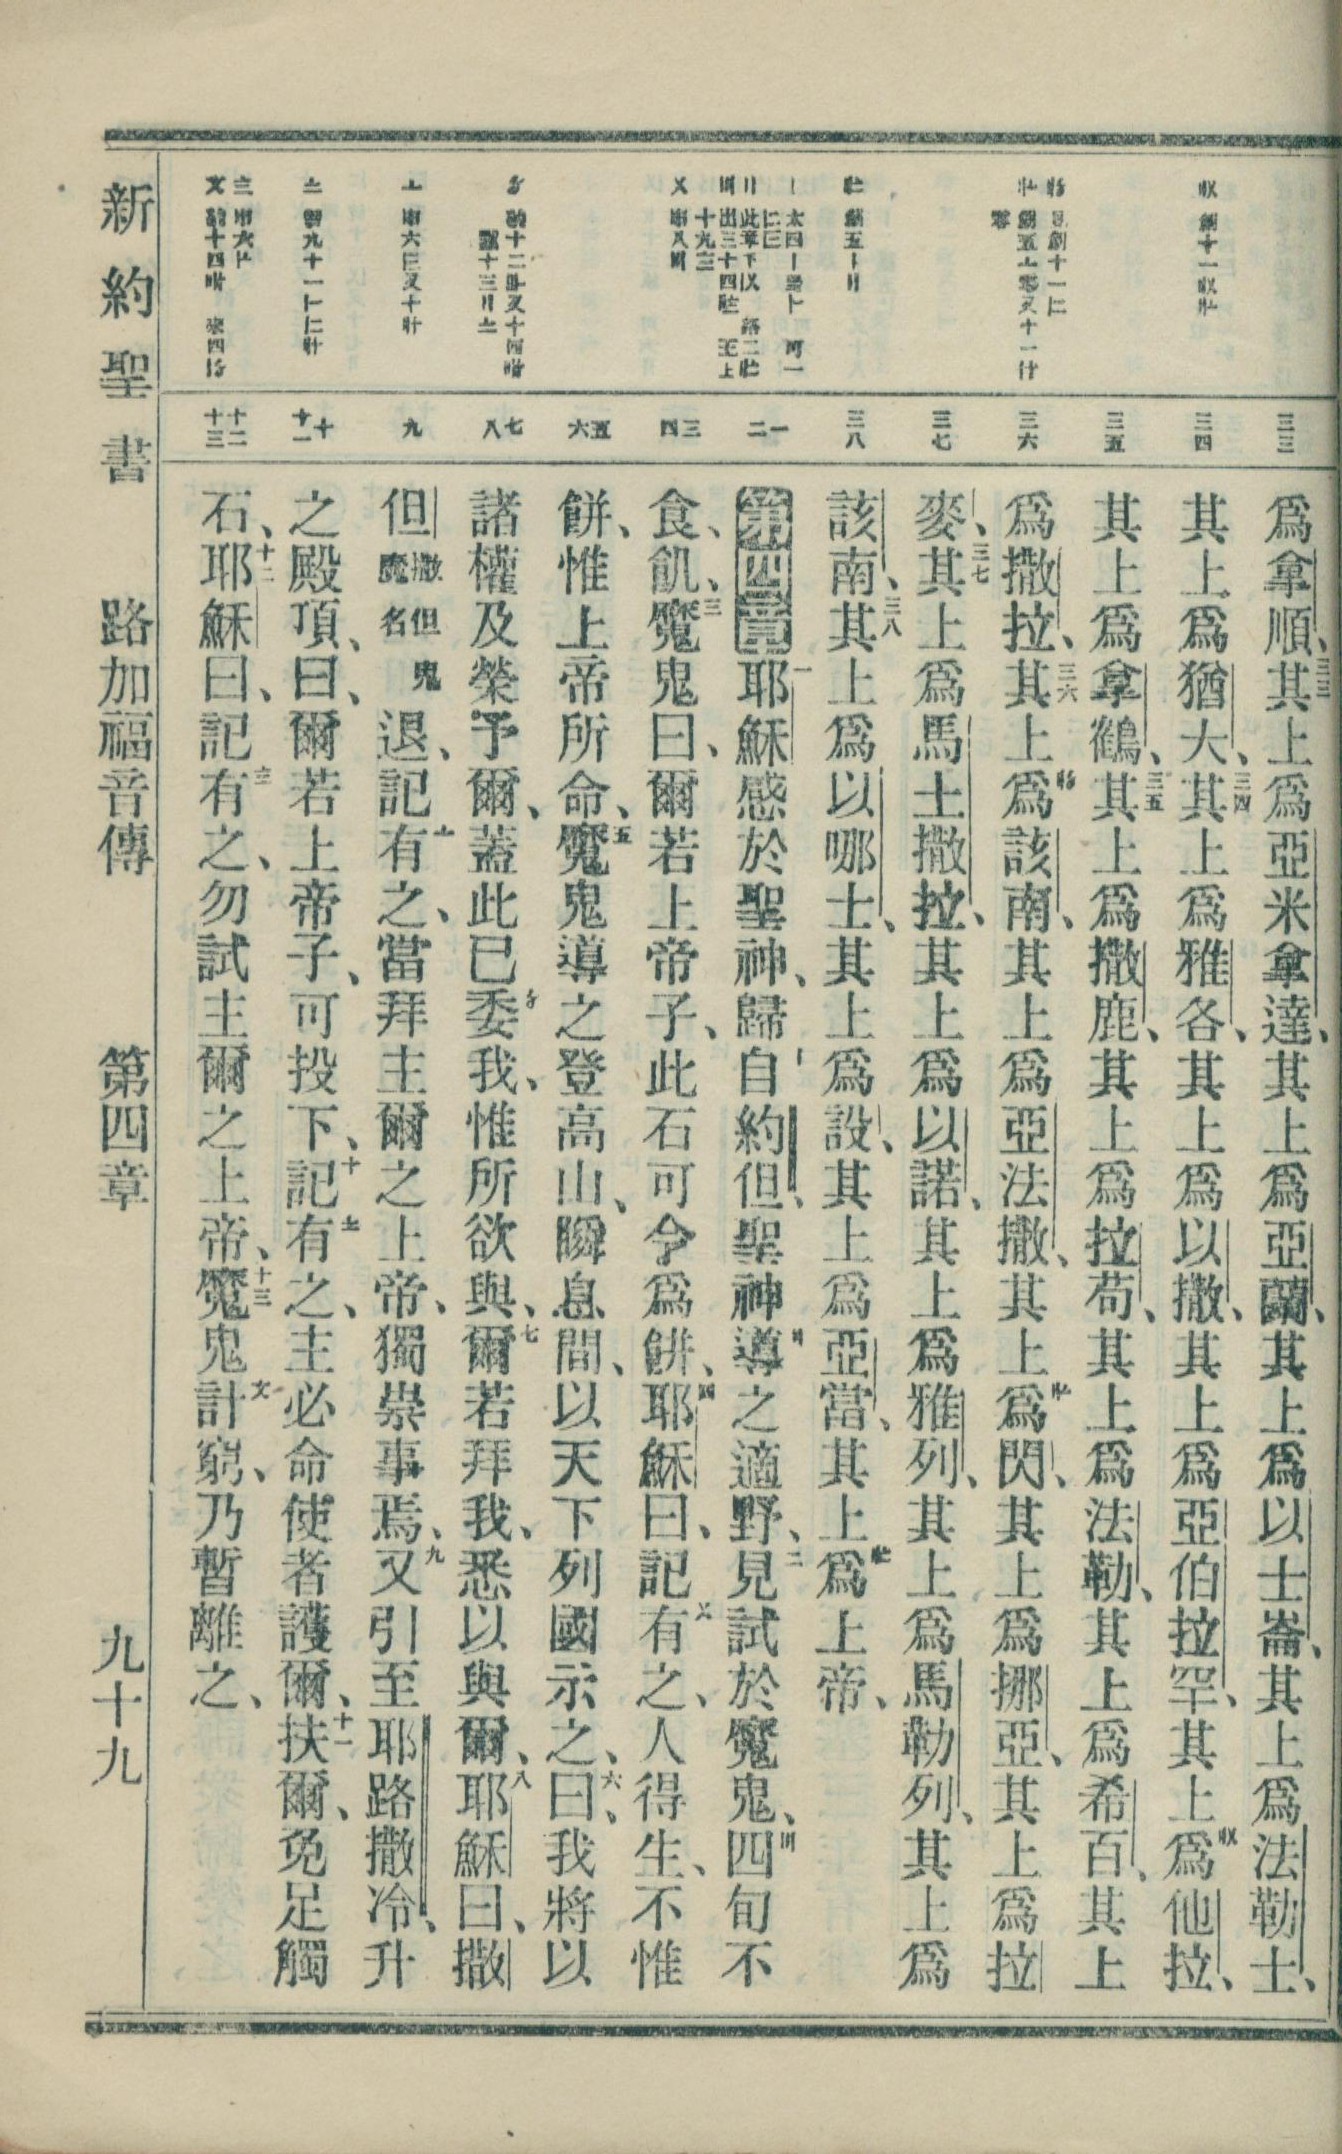 三三
爲拿順、其上爲亞米拿達、其上爲亞蘭、其上爲以士崙、其上爲法勒士、
三四
其上爲猶大、其上爲雅各、其上爲以撒、其上爲亞伯拉罕、其上爲他拉、
三五
其上爲拿鶴、其上爲撒鹿、其上爲拉苟、其上爲法勒、其上爲希百、其上
三六
爲撒拉、其上爲該南、其上爲亞法撒、其上爲閃、其上爲挪亞、其上爲拉
三七
麥、其上爲馬土撒拉、其上爲以諾、其上爲雅列、其上爲馬勒列、其上爲
三八
該南、其上爲以哪士、其上爲設、其上爲亞當、其上爲上帝、
一
二
第四章 耶穌感於聖神、歸自約但、聖神導之適野、見試於魔鬼、四旬不
三
四
食、飢、魔鬼曰、爾若上帝子、此石可令爲餅、耶穌曰、記有之、人得生、不惟
五
六
餅、惟上帝所命、魔鬼導之登高山、瞬息間、以天下列國示之、曰、我將以
七
八
諸權及榮予爾、蓋此已委我、惟所欲與、爾若拜我、悉以與爾、耶穌曰、撒
九
但撒但鬼魔名退、記有之、當拜主爾之上帝、獨崇事焉、又引至耶路撒冷、升
十
十一
之殿頂、曰、爾若上帝子、可投下、記有之、主必命使者護爾、扶爾、免足觸
十二
十三
石、耶穌曰、記有之、勿試主爾之上帝、魔鬼計窮、乃暫離之、
新約聖書 路加福音傳 第四章 九十九